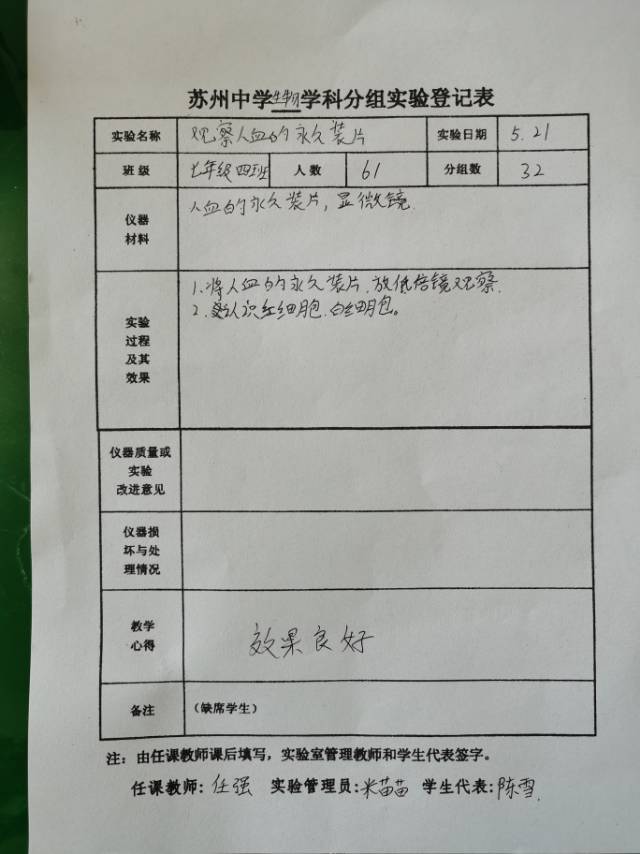 苏州中学生物学科分组实验登记表
实验名称 观察人血的永久装片 实验日期 5.21
班级 七年级四班 人数 61 分组数 32
仪器材料 人血的永久装片，显微镜.
实验过程及其效果
1.将人血的永久装片.放低倍镜观察.
2.认识红细胞.白细胞。
仪器质量或实验改进意见
仪器损坏与处理情况
教学心得 效果良好
备注 （缺席学生）
注：由任课教师课后填写，实验室管理教师和学生代表签字。
任课教师：任强 实验管理员：米苗苗 学生代表：陈雪